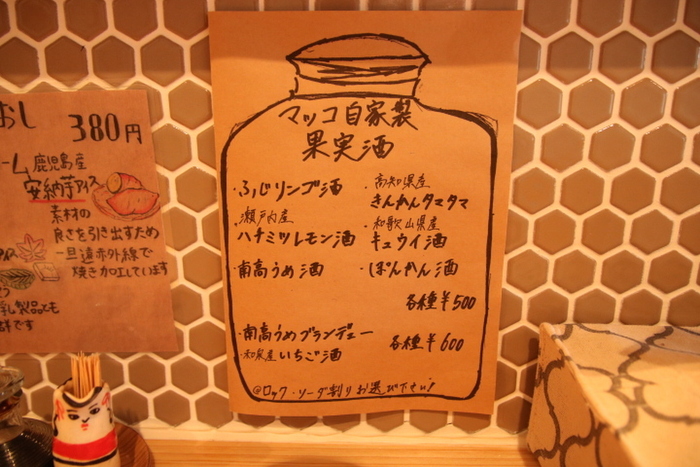 おし 380円
ーム 鹿児島産
安納芋アイス
素材の
良さを引き出すため
一旦遠赤外線で
焼き加工しています
乳製品でも
です
マッコ自家製
果実酒
・ふじリンゴ酒
瀬戸内産
ハチミツレモン酒
・南高うめ酒
・高知県産
きんかんタマタマ
・和歌山県産
キュウイ酒
・ぽんかん酒
各種¥500
・南高うめブランデュー
・和泉産いちご酒
各種¥600
@ロック・ソーダ割りお選び下さい!